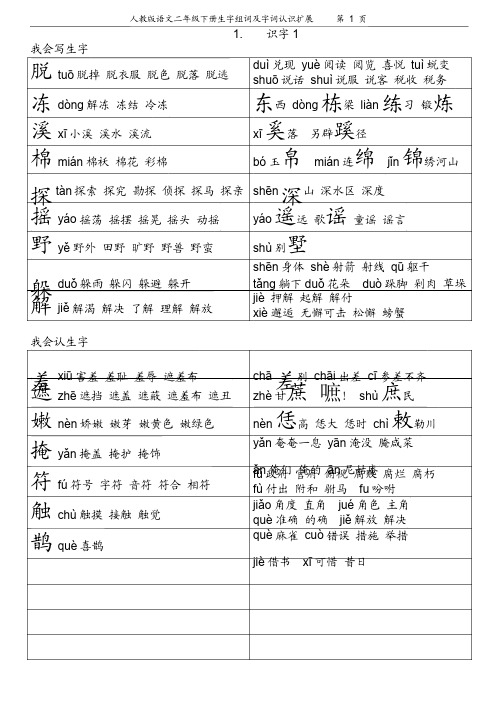 人教版语文二年级下册生字组词及字词认识扩展 第 1 页
1. 识字 1
我会写生字
脱 tuō 脱掉 脱衣服 脱色 脱落 脱逃
duì 兑现 yuè 阅读 阅览 喜悦 tuì 蜕变
shuō 说话 shuì 说服 说客 税收 税务
冻 dòng 解冻 冻结 冷冻
东西 dòng 栋梁 liàn 练习 锻炼
溪 xī 小溪 溪水 溪流
xī 奚落 另辟蹊径
棉 mián 棉袄 棉花 彩棉
bó 玉帛 mián 连绵 jǐn 锦绣河山
探 tàn 探索 探究 勘探 侦探 探马 探亲
shēn 深山 深水区 深度
摇 yáo 摇荡 摇摆 摇晃 摇头 动摇
yáo 遥远 歌谣 童谣 谣言
野 yě 野外 田野 旷野 野兽 野蛮
shù 别墅
躲 duǒ 躲雨 躲闪 躲避 躲开
shēn 身体 shè 射箭 射线 qū 躯干
tǎng 躺下 duǒ 花朵 duò 跺脚 剁肉 草垛
解 jiě 解渴 解决 了解 理解 解放
jiè 押解 起解 解付
xiè 邂逅 无懈可击 松懈 螃蟹
我会认生字
羞 xiū 害羞 羞耻 羞辱 遮羞布
chā 差别 chāi 出差 cī 参差不齐
遮 zhē 遮挡 遮盖 遮蔽 遮羞布 遮丑
zhè 甘蔗 嗻! shù 庶民
嫩 nèn 娇嫩 嫩芽 嫩黄色 嫩绿色
nèn 恁高 恁大 恁时 chì 敕勒川
掩 yǎn 掩盖 掩护 掩饰
yǎn 奄奄一息 yān 淹没 腌成菜
ǎn 俺们 俺的 ān 尼姑庵
符 fú 符号 字符 音符 符合 相符
fǔ 政府 官府 俯视 腐败 腐烂 腐朽
fù 付出 附和 驸马 fu 吩咐
触 chù 触摸 接触 触觉
jiǎo 角度 直角 jué 角色 主角
què 准确 的确 jiě 解放 解决
鹊 què 喜鹊
què 麻雀 cuò 错误 措施 举措
jiè 借书 xī 可惜 昔日